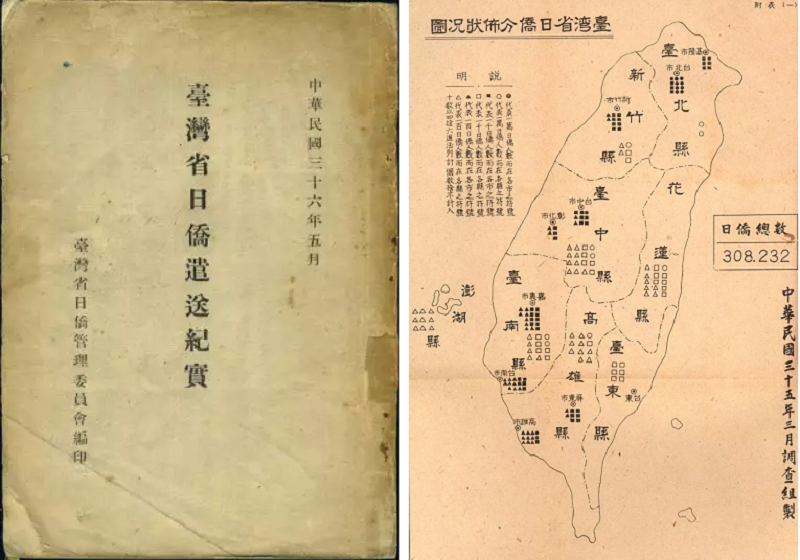 中華民國三十六年五月
臺灣省日僑遣送紀實
臺灣省日僑管理委員會編印
附表(一)
臺灣省日僑分佈狀況圖
說明
日僑總數
308.232
中華民國三十五年三月調查組製
臺北縣
基隆市
台北市
新竹縣
新竹市
臺中縣
台中市
彰化市
花蓮縣
臺南縣
嘉義市
台南市
高雄縣
高雄市
屏東市
臺東縣
台東
澎湖縣